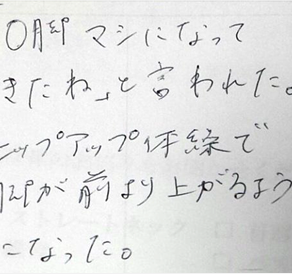 O脚 マシになって
きたね」と言われた。
ヒップアップ体操で
脚が前より上がるよう
になった。